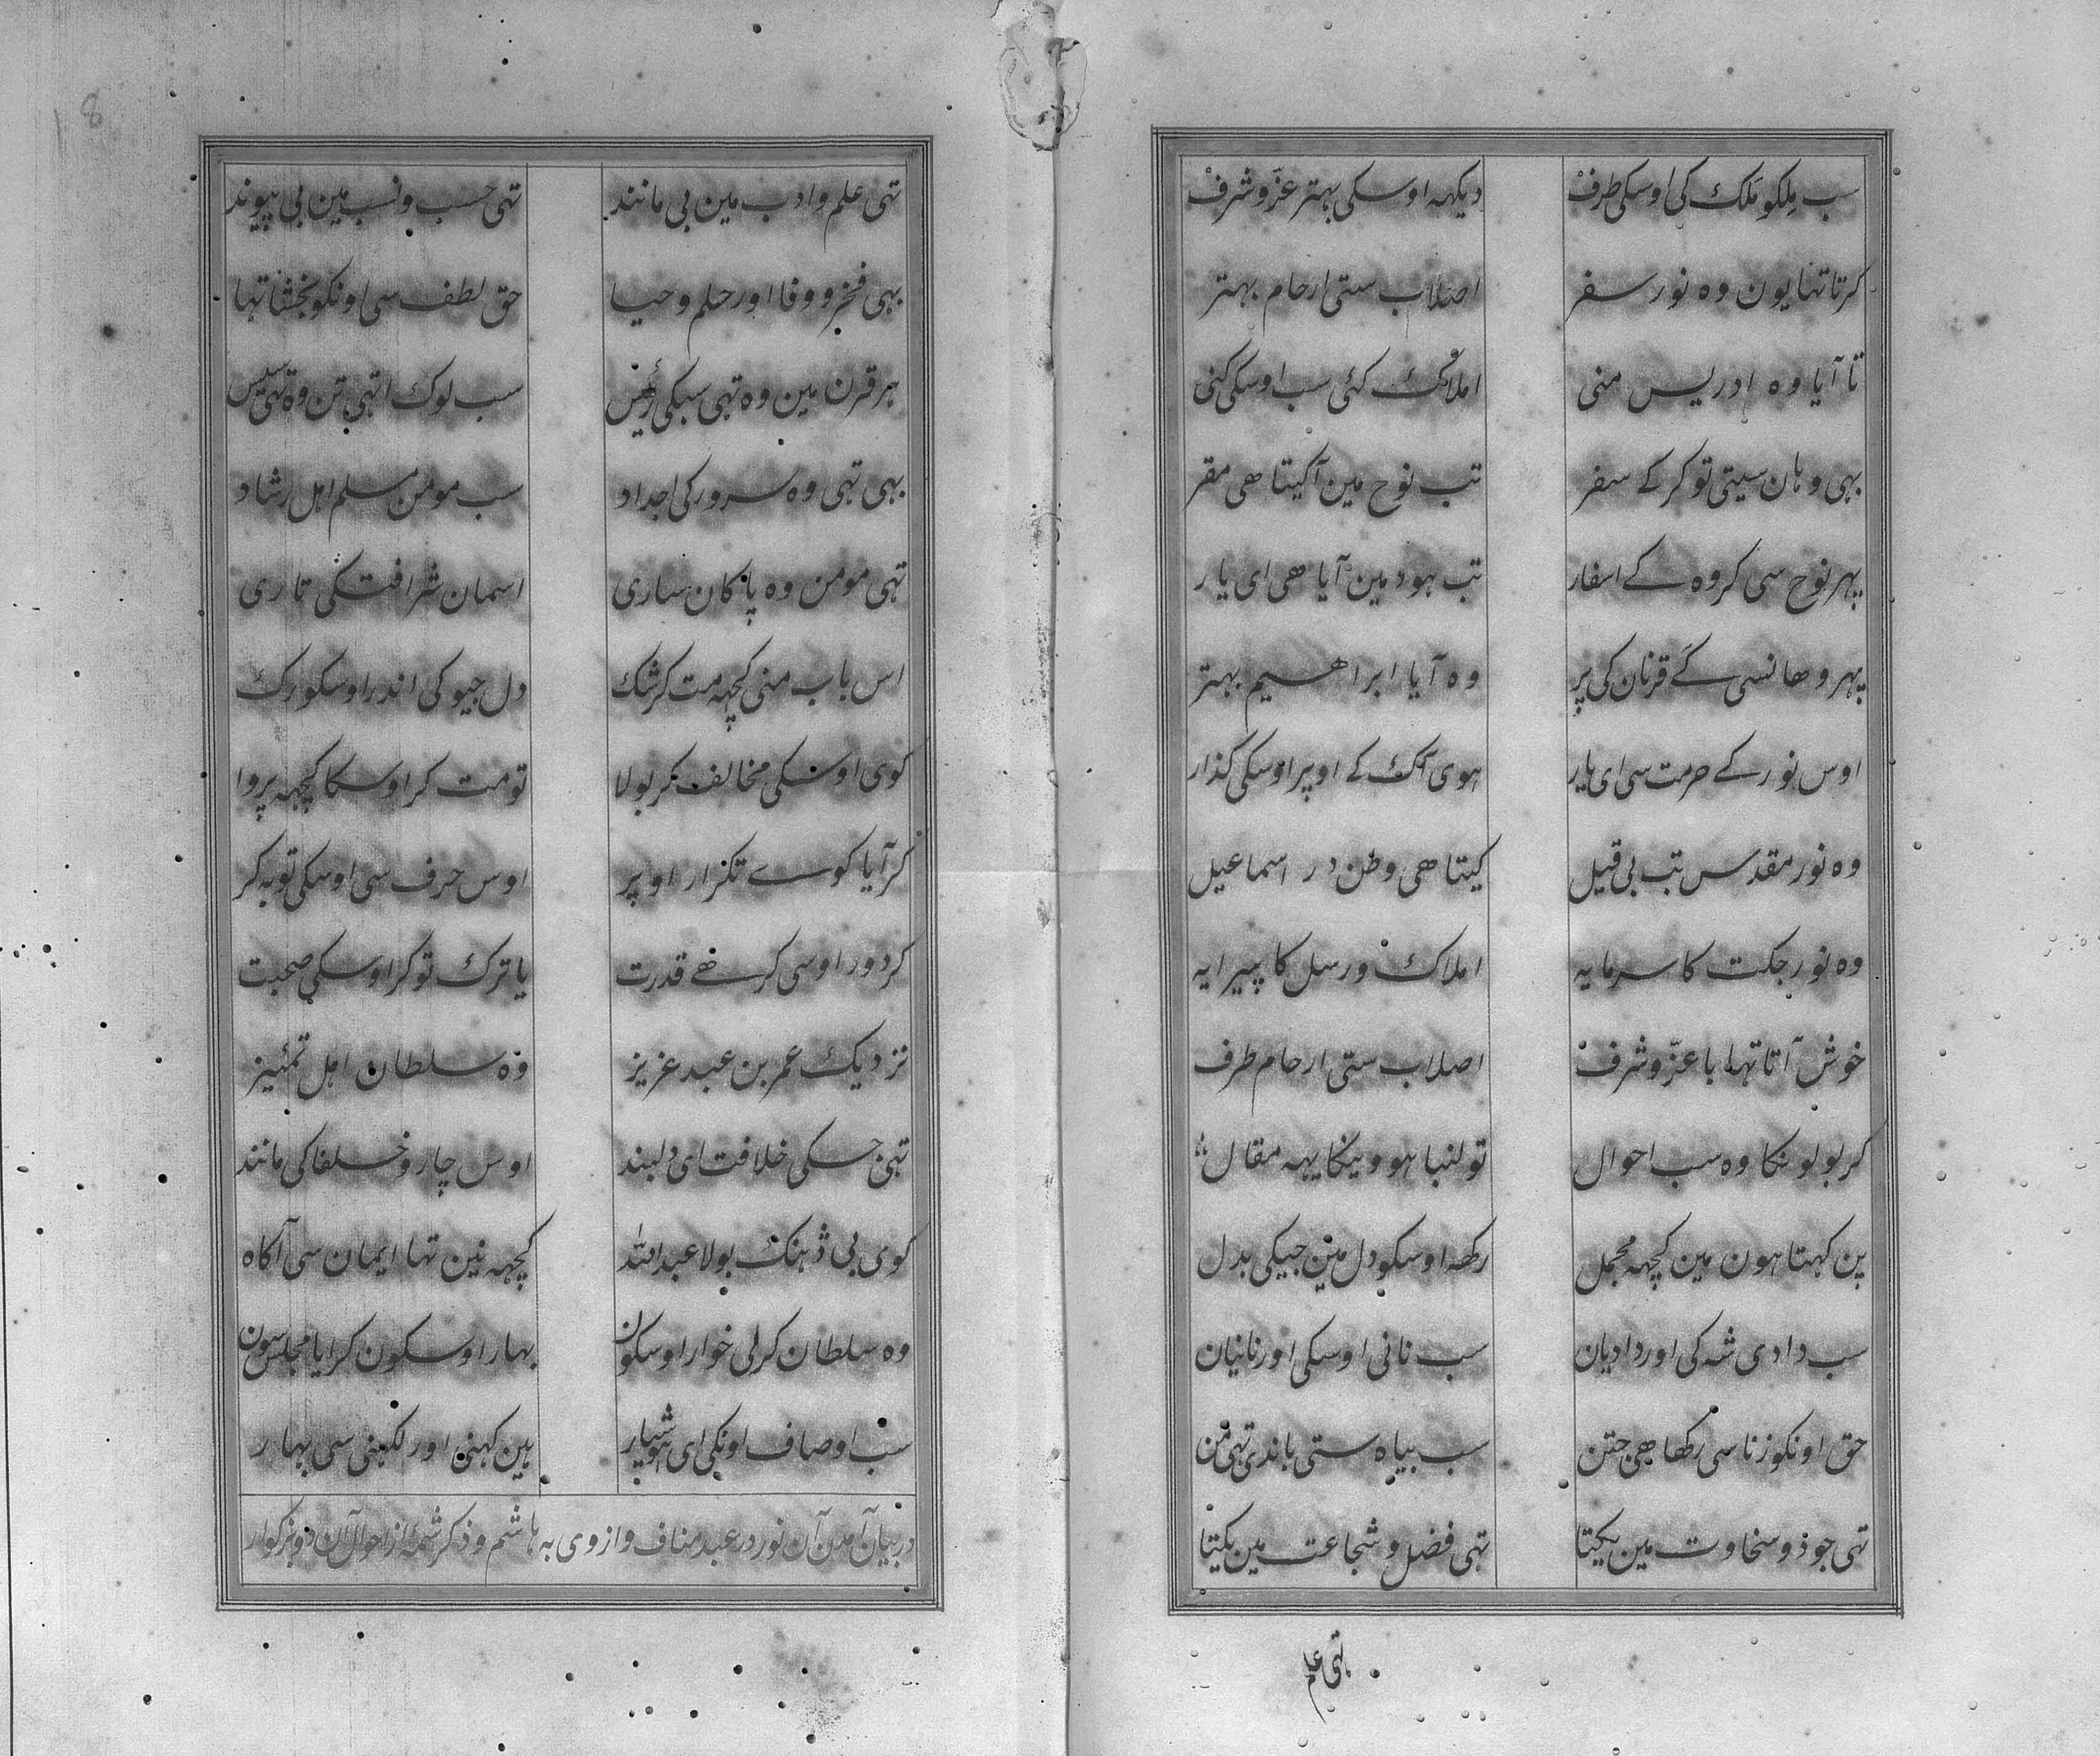 سب ملکو ملک کی اوسکی طرف دیکهه اوسکی بهتر عزّ و شرف
کرتا تها یون وه نور سفر اصلاب ستی ارحام بهتر
تا آیا وه ادریس منی املاک کئی سب اوسکی کنی
بهی وهان سیتی تو کر کے سفر تب نوح مین آ کیتا هی مقر
پهر نوح سی کر وه کے اسفار تب هود مین آیا هی ای یار
پهر وهانسی کے قرنان کی پر وه آیا ابراهیم بهتر
اوس نور کے حرمت سی ای یار هوی آک کے اوپر اوسکی کذار
وه نور مقدس تب بی قیل کیتا هی وطن در اسماعیل
وه نور جکت کا سرمایه املاک و رسل کا پیرایه
خوش آتا تها با عزّ و شرف اصلاب ستی ارحام طرف
کر بولونکا وه سب احوال تو لنبا هوویکا یهه مقال
پن کهتا هون مین کچهه مجمل رکهه اوسکو دل مین جیکی بدل
سب دادی شه کی اور دادیان سب نانی اوسکی اور نانیان
حق اونکو زنا سی رکها هی جتن سب بیاه ستی باندی تهی من
تهی جود و سخاوت مین یکتا تهی فضل و شجاعت مین یکتا
تهی علم
تهی علم و ادب مین بی مانند تهی حسب و نسب مین بی پیوند
بهی فخر و وفا اور حلم و حیا حق لطف سی اونکو بخشا تها
هر قرن مین وه تهی سبکی رئیس سب لوک اتهی تن وه تهی سیس
بهی تهی وه سرور کی اجداد سب مومن مسلم اهل رشاد
تهی مومن وه پاکان ساری اسمان شرافت کی تاری
اس باب منی کچهه مت کر شک دل جیو کی اندر اوسکو رک
کوی اوسکی مخالف کر بولا تو مت کر اوسکا کچهه پروا
کر آیا کوے تکرار اوپر اوس حرف سی اوسکی توبه کر
کر دور اوسی کر هے قدرت یا ترک تو کر اوسکی صحبت
نزدیک عمر بن عبد عزیز وه سلطان اهل تمئیز
تهی جسکی خلافت ای دلبند اوس چارو خلفا کی مانند
کوی بی ڈهنک بولا عبدالله کچهه نین تها ایمان سی آکاه
وه سلطان کر لی خوار اوسکون بهار اوسکون کرایا مجلس سون
سب اوصاف اونکی ای هوشیار هین کهنی اور لکهنی سی بهار
در بیان آمدن آن نور در عبد مناف و از وی به هاشم و ذکر شمهٔ از احوال آن دو بزرکوار
8